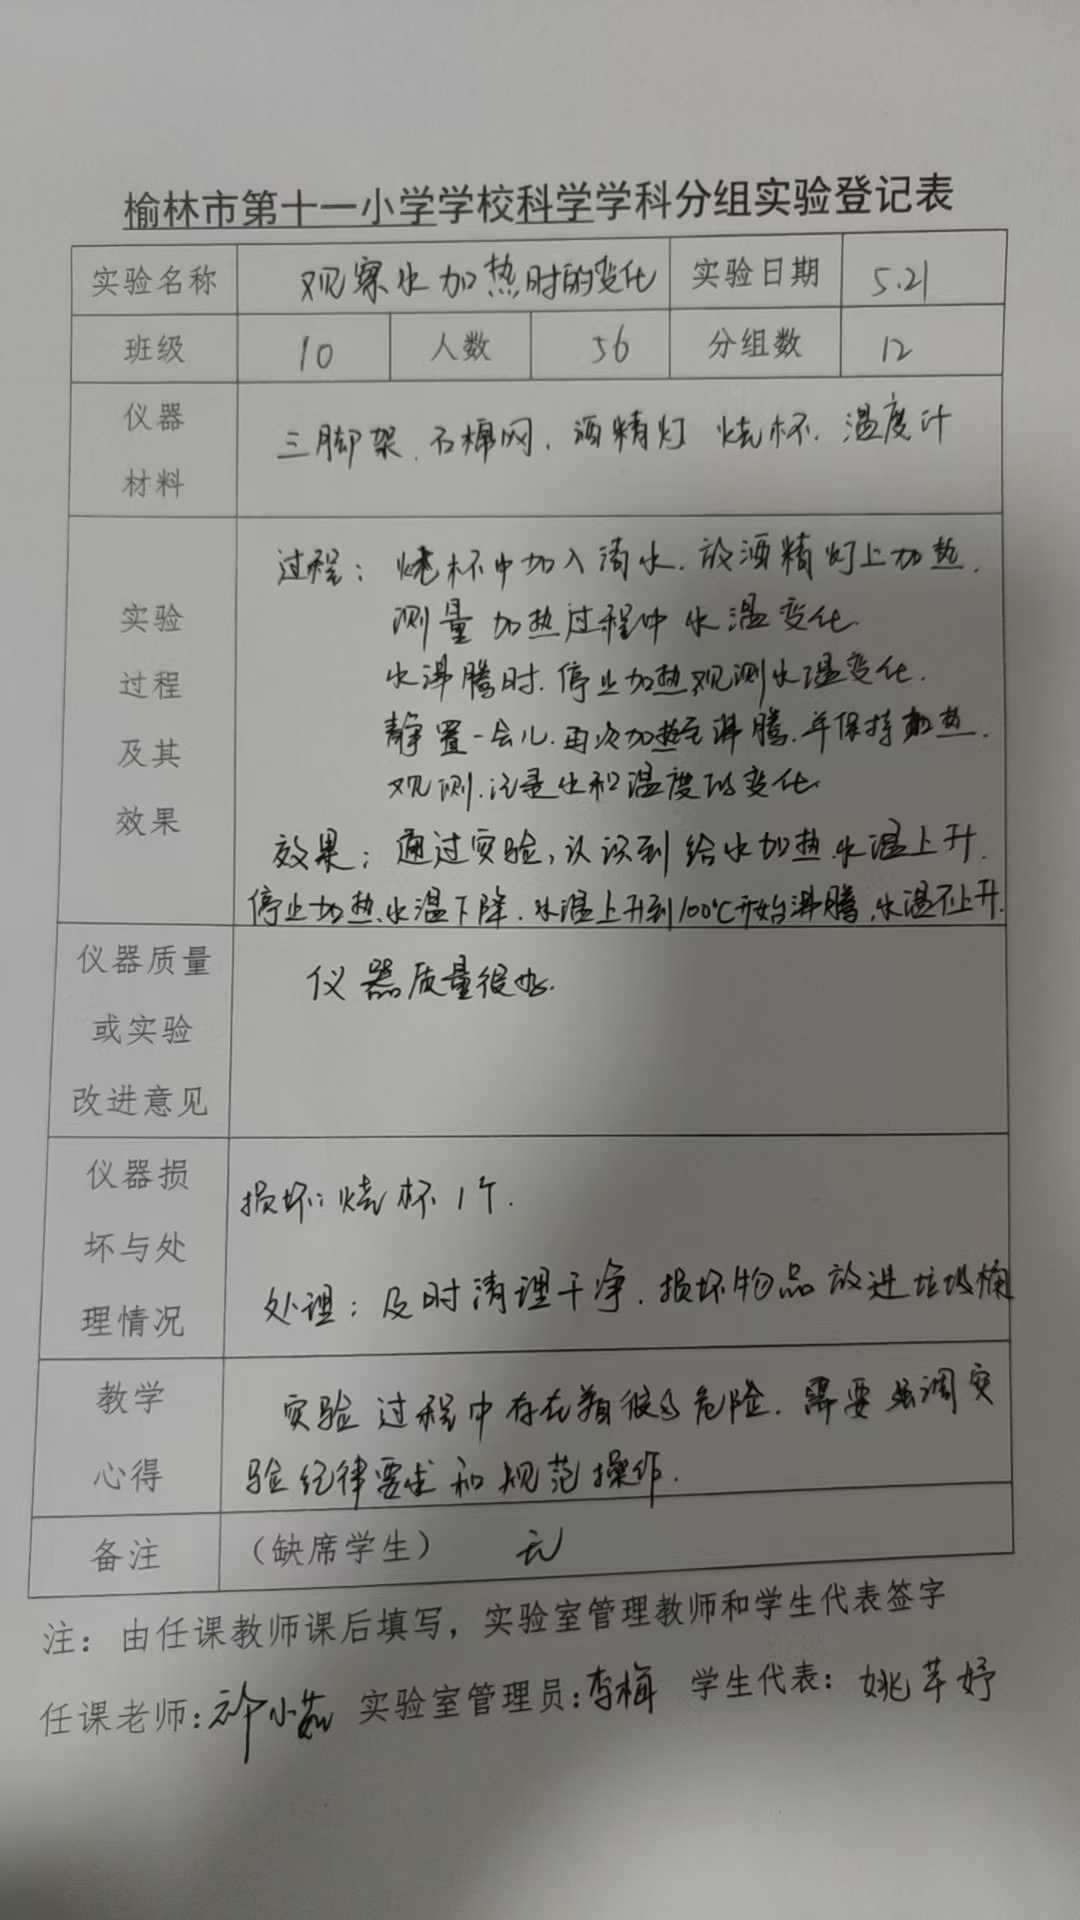 榆林市第十一小学学校科学学科分组实验登记表
实验名称 观察水加热时的变化 实验日期 5.21
班级 10 人数 56 分组数 12
仪器
材料
三脚架、石棉网、酒精灯 烧杯、温度计
实验
过程
及其
效果
过程：烧杯中加入清水、放酒精灯上加热、
测量加热过程中水温变化
水沸腾时、停止加热观测水温变化、
静置一会儿、再次加热至沸腾、并保持加热、
观测、记录水和温度的变化
效果：通过实验，认识到给水加热、水温上升、
停止加热、水温下降、水温上升到100℃开始沸腾、水温不上升
仪器质量
或实验
改进意见
仪器质量很好.
仪器损
坏与处
理情况
损坏：烧杯1个.
处理：及时清理干净、损坏物品放进垃圾桶
教学
心得
实验过程中存在危险、需要强调实
验纪律要求和规范操作.
备注 （缺席学生） 无
注：由任课教师课后填写，实验室管理教师和学生代表签字
任课老师：许小茹 实验室管理员：李梅 学生代表：姚芊妤